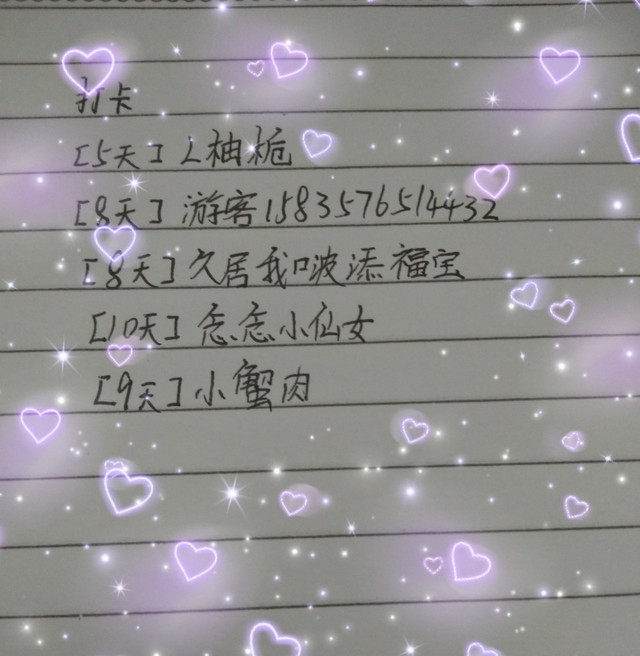 打卡
[5天] L柚栀
[8天] 游客1583576514432
[8天] 久居我啵添福宝
[10天] 念念小仙女
[9天] 小蟹肉